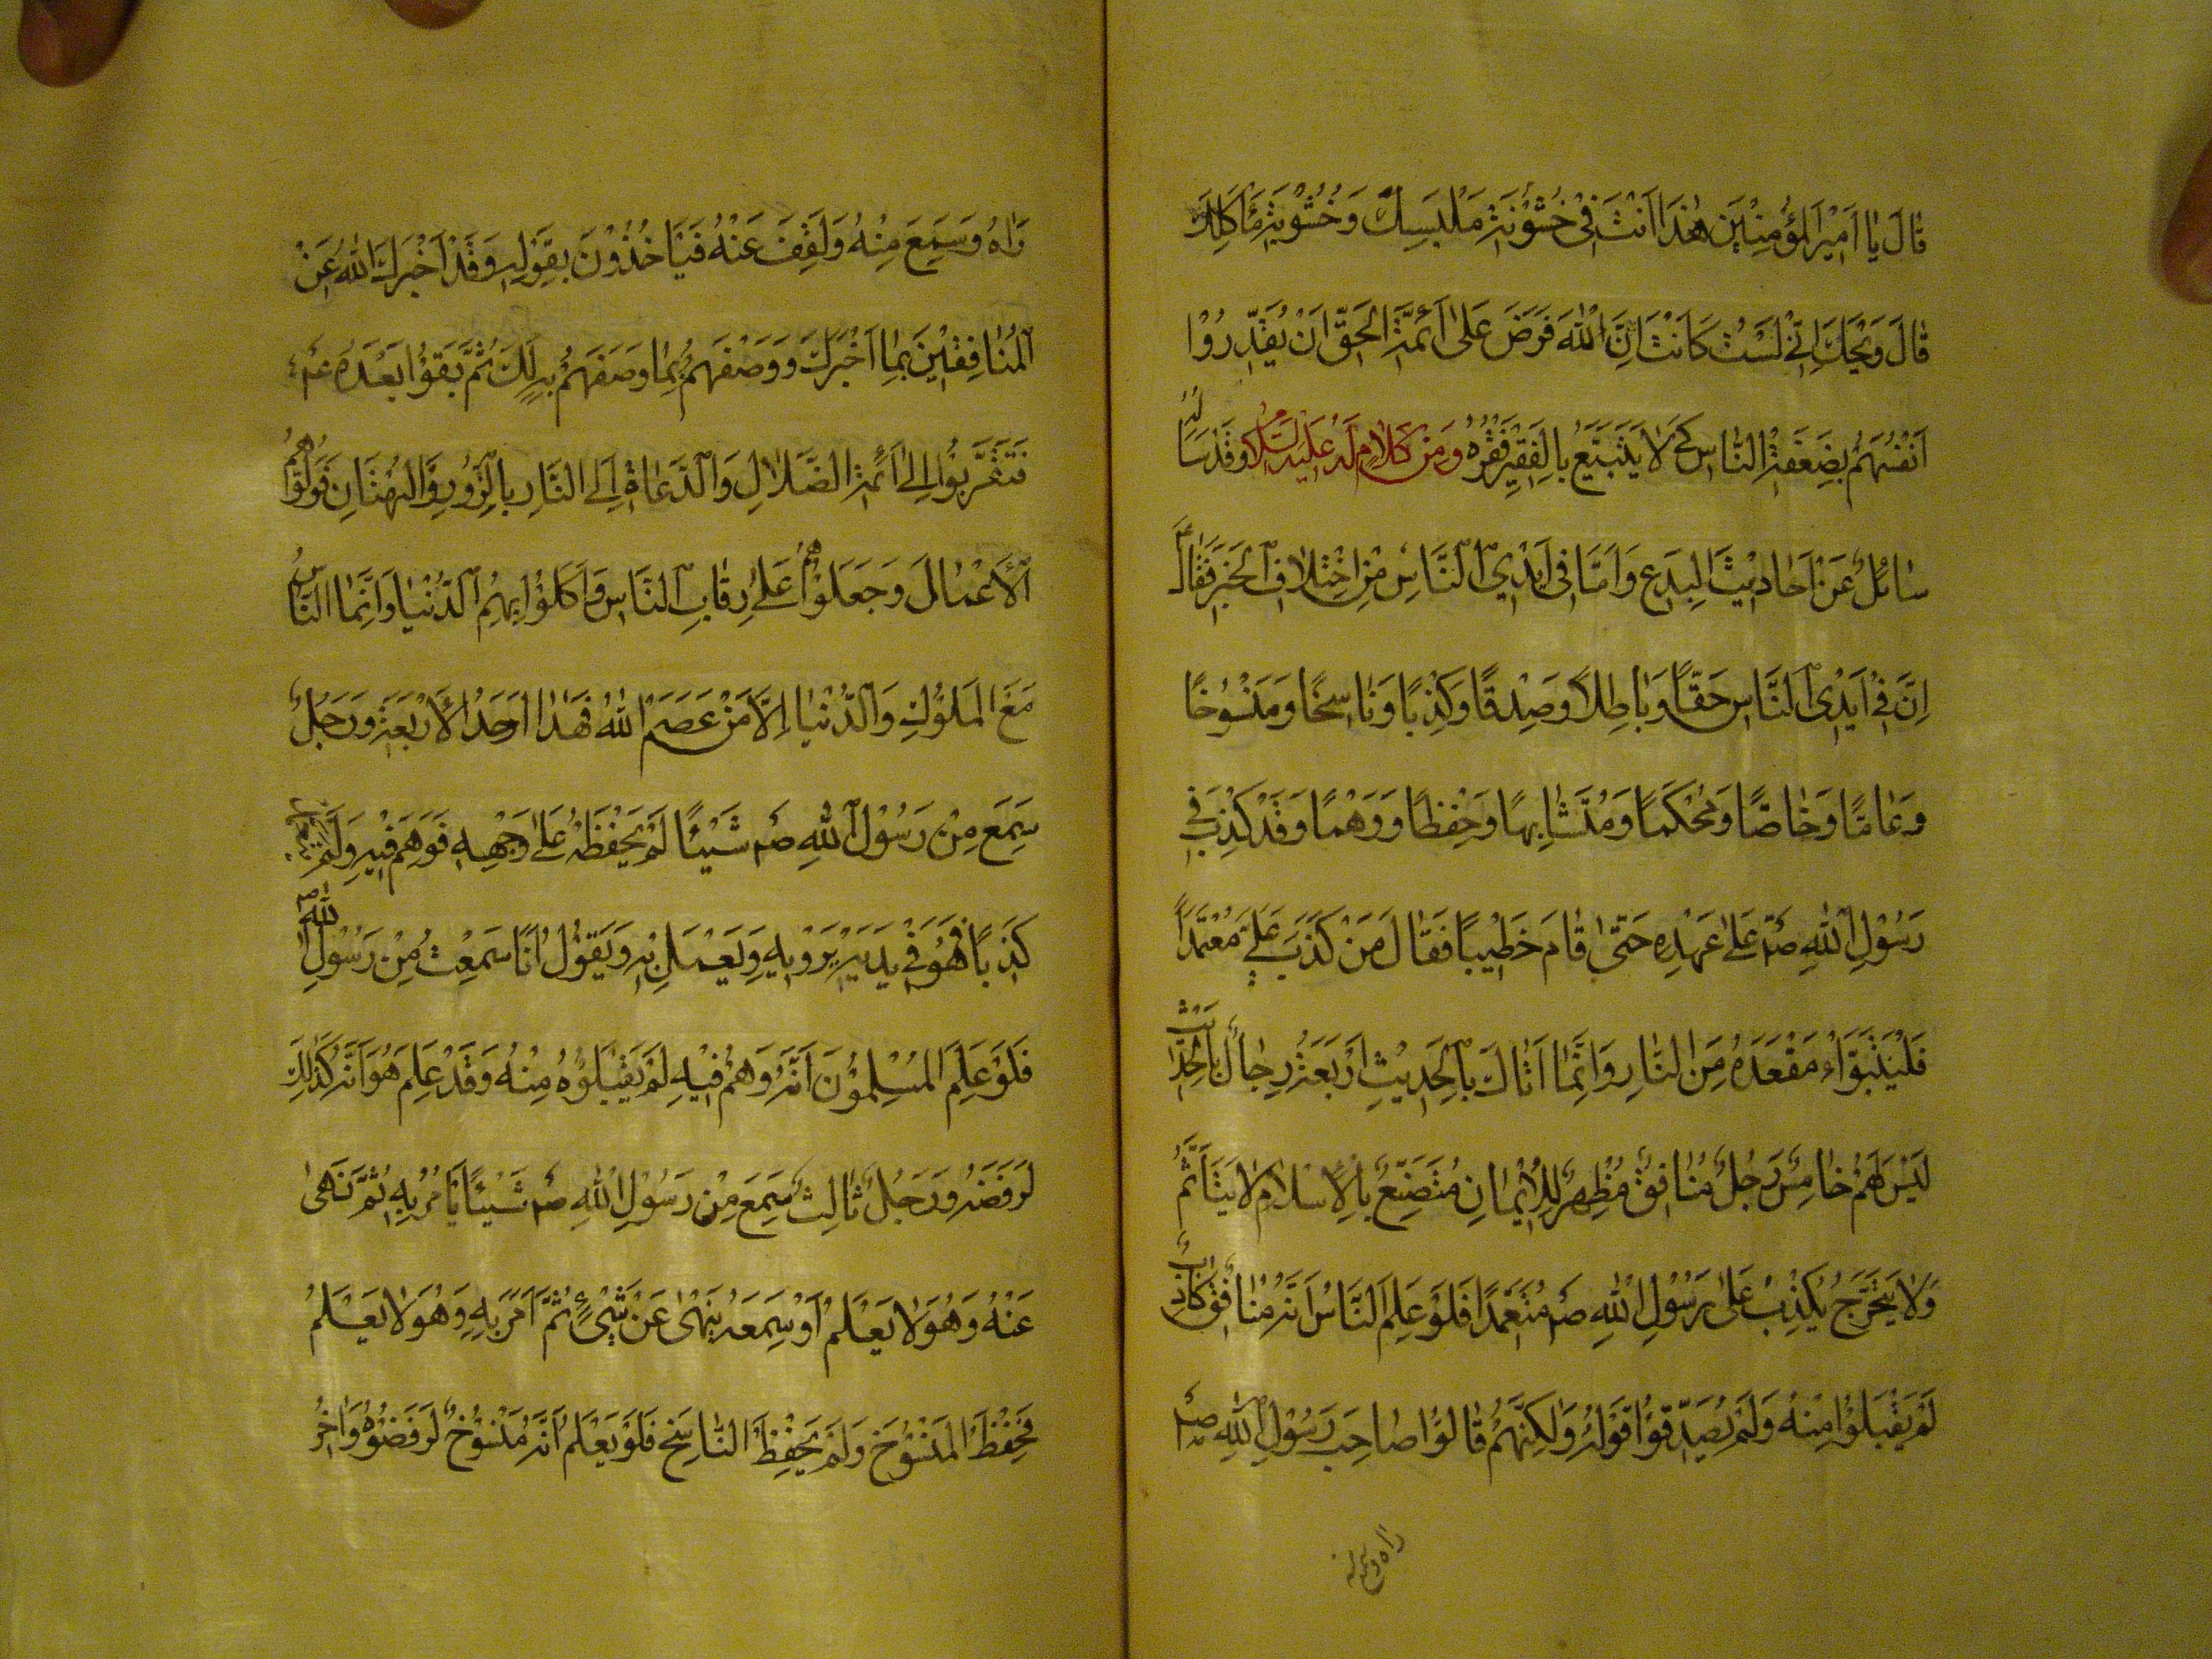 قَالَ يَا أَمِيْرَ الْمُؤْمِنِيْنَ هٰذَا اَنْتَ فِيْ خُشُوْنَةِ مَلْبَسِكَ وَخُشُوْبَةِ مَأْكَلِكَ
قَالَ وَيْحَكَ اِنِّيْ لَسْتُ كَاَنْتَ اِنَّ اللهَ فَرَضَ عَلٰى اَئِمَّةِ الْحَقِّ اَنْ يُقَدِّرُوْا
اَنْفُسَهُمْ بِضَعَفَةِ النَّاسِ كَيْ لَا يَتَبَيَّغَ بِالْفَقِيْرِ فَقْرُهُ وَمِنْ كَلَامٍ لَهُ عَلَيْهِ السَّلَامُ وَقَدْ سَاَلَهُ
سَائِلٌ عَنْ اَحَادِيْثِ الْبِدَعِ وَاَمَّا فِي اَيْدِي النَّاسِ مِنِ اخْتِلَافِ الْخَبَرِ فَقَالَ ع
اِنَّ فِيْ اَيْدِي النَّاسِ حَقًّا وَبَاطِلًا وَصِدْقًا وَكَذِبًا وَنَاسِخًا وَمَنْسُوْخًا
وَعَامًّا وَخَاصًّا وَمُحْكَمًا وَمُتَشَابِهًا وَحِفْظًا وَوَهْمًا وَقَدْ كُذِبَ فِي
رَسُوْلِ اللهِ صم عَلٰى عَهْدِهِ حَتّٰى قَامَ خَطِيْبًا فَقَالَ مَنْ كَذَبَ عَلَيَّ مُعْتَمِدًا
فَلْيَتَبَوَّاْءْ مَقْعَدَهُ مِنَ النَّارِ وَاِنَّمَا اَتَاكَ بِالْحَدِيْثِ اَرْبَعَةُ رِجَالٍ بِالْحَدِيْثِ
لَيْسَ لَهُمْ خَامِسٌ رَجُلٌ مُنَافِقٌ مُظْهِرٌ لِلْاِيْمَانِ مُتَصَنِّعٌ بِالْاِسْلَامِ لَا يَتَاَثَّمُ
وَلَا يَتَحَرَّجُ يَكْذِبُ عَلٰى رَسُوْلِ اللهِ صم مُتَعَمِّدًا فَلَوْ عَلِمَ النَّاسُ اَنَّهُ مُنَافِقٌ كَاذِبٌ
لَمْ يَقْبَلُوْا مِنْهُ وَلَمْ يُصَدِّقُوْا قَوْلَهُ وَلٰكِنَّهُمْ قَالُوْا صَاحِبُ رَسُوْلِ اللهِ صم
راه وسمع منه
رَاٰهُ وَسَمِعَ مِنْهُ وَلَقِفَ عَنْهُ فَيَاْخُذُوْنَ بِقَوْلِهِ وَقَدْ اَخْبَرَكَ اللهُ عَنْ
الْمُنَافِقِيْنَ بِمَا اَخْبَرَكَ وَوَصَفَهُمْ بِمَا وَصَفَهُمْ بِهِ لَكَ ثُمَّ بَقَوْا بَعْدَهُ عم
فَتَقَرَّبُوْا اِلٰى اَئِمَّةِ الضَّلَالِ وَالدُّعَاةِ اِلَى النَّارِ بِالزُّوْرِ وَالْبُهْتَانِ فَوَلَّوْهُمُ
الْاَعْمَالَ وَجَعَلُوْهُمْ عَلٰى رِقَابِ النَّاسِ وَاَكَلُوْا بِهِمُ الدُّنْيَا وَاِنَّمَا النَّاسُ
مَعَ الْمُلُوْكِ وَالدُّنْيَا اِلَّا مَنْ عَصَمَ اللهُ فَهٰذَا اَحَدُ الْاَرْبَعَةِ وَرَجُلٌ
سَمِعَ مِنْ رَسُوْلِ اللهِ صم شَيْئًا لَمْ يَحْفَظْهُ عَلٰى وَجْهِهِ فَوَهِمَ فِيْهِ وَلَمْ
كَذِبًا فَهُوَ فِيْ يَدَيْهِ يَرْوِيْهِ وَيَعْمَلُ بِهِ وَيَقُوْلُ اَنَا سَمِعْتُ مِنْ رَسُوْلِ اللهِ صم
فَلَوْ عَلِمَ الْمُسْلِمُوْنَ اَنَّهُ وَهِمَ فِيْهِ لَمْ يَقْبَلُوْهُ مِنْهُ وَقَدْ عَلِمَ هُوَ اَنَّهُ كَذٰلِكَ
لَرَفَضَهُ وَرَجُلٌ ثَالِثٌ سَمِعَ مِنْ رَسُوْلِ اللهِ صم شَيْئًا يَاْمُرُ بِهِ ثُمَّ نَهٰى
عَنْهُ وَهُوَ لَا يَعْلَمُ اَوْ سَمِعَهُ يَنْهٰى عَنْ شَيْءٍ ثُمَّ اَمَرَ بِهِ وَهُوَ لَا يَعْلَمُ
فَحَفِظَ الْمَنْسُوْخَ وَلَمْ يَحْفَظِ النَّاسِخَ فَلَوْ يَعْلَمُ اَنَّهُ مَنْسُوْخٌ لَرَفَضُوْهُ وَاٰخَرُ